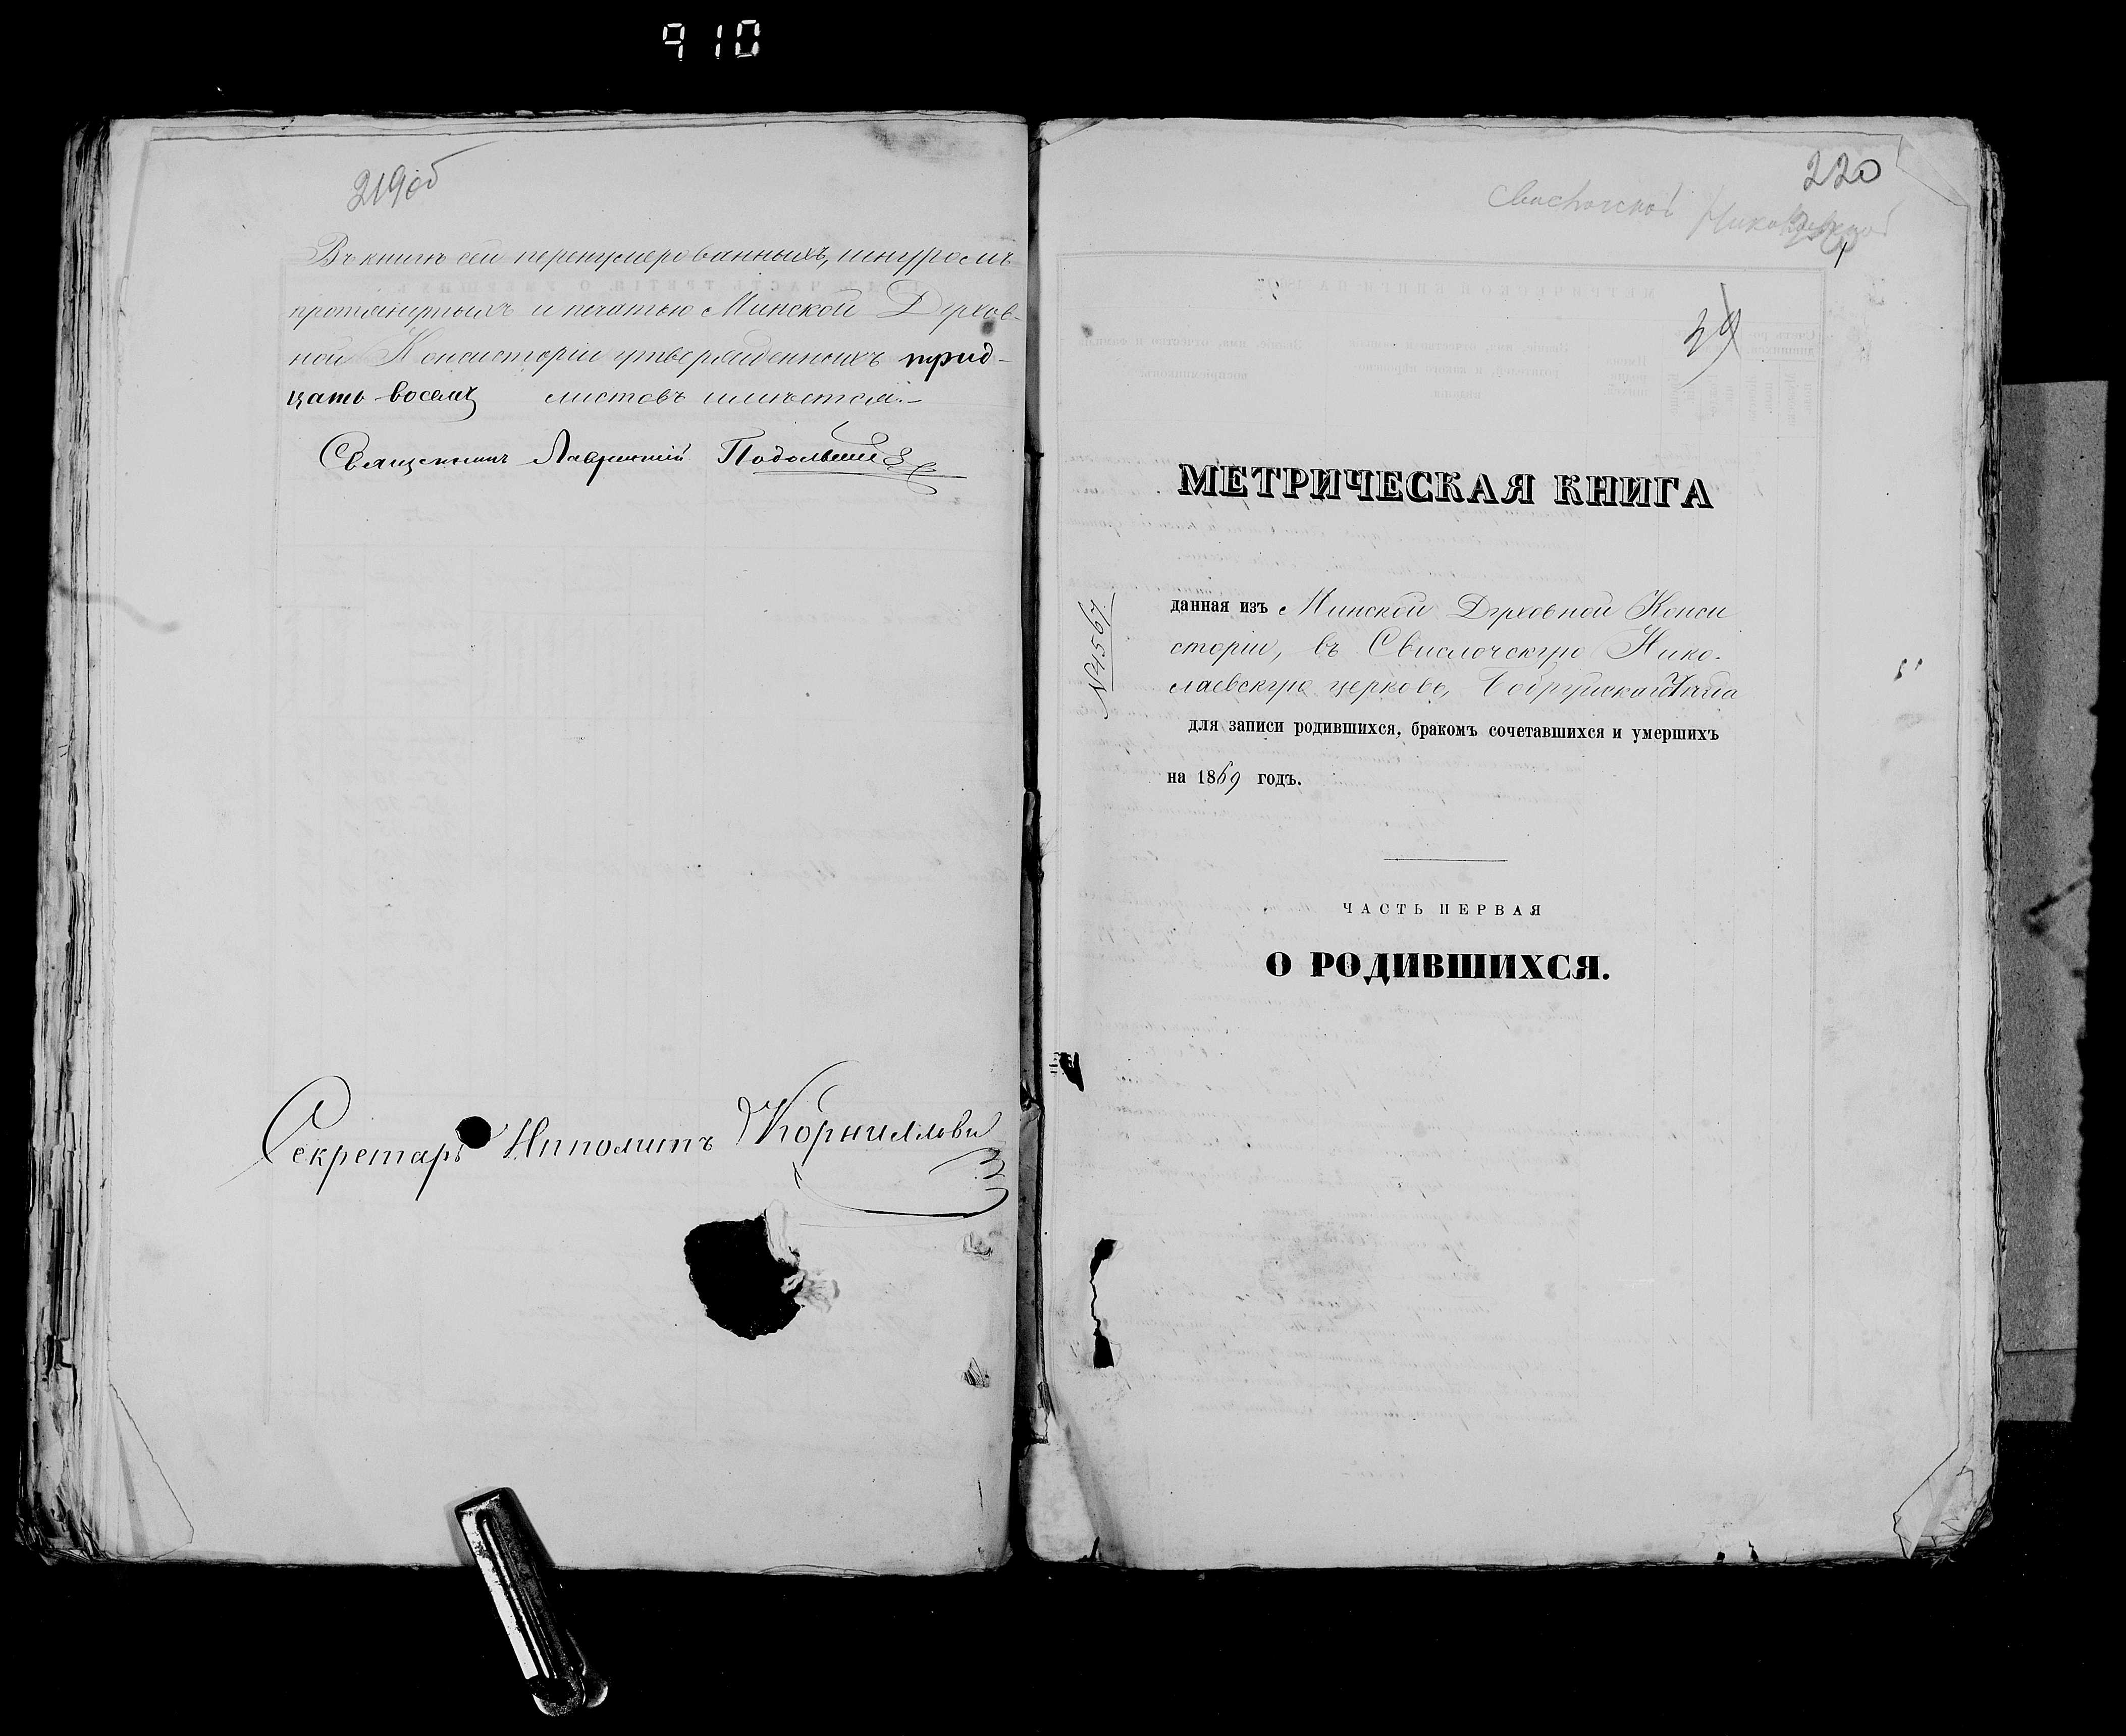 910
219об
Въ книгѣ сей перенумерованныхъ, шнуромъ
протянутыхъ и печатью Минской Духов-
ной Консисторіи утвержденныхъ трид-
цать восемь листовъ имѣется.–
Священникъ Лаврентій
Секретарь Ипполитъ
220
Свислочской Николаевской
39
МЕТРИЧЕСКАЯ КНИГА
№4567
данная изъ Минской Духовной Конси
сторіи, въ Свислочскую Нико-
лаевскую церковь, Бобруйскаго уѣзда
для записи родившихся, бракомъ сочетавшихся и умершихъ
на 1869 годъ.
ЧАСТЬ ПЕРВАЯ
О РОДИВШИХСЯ.